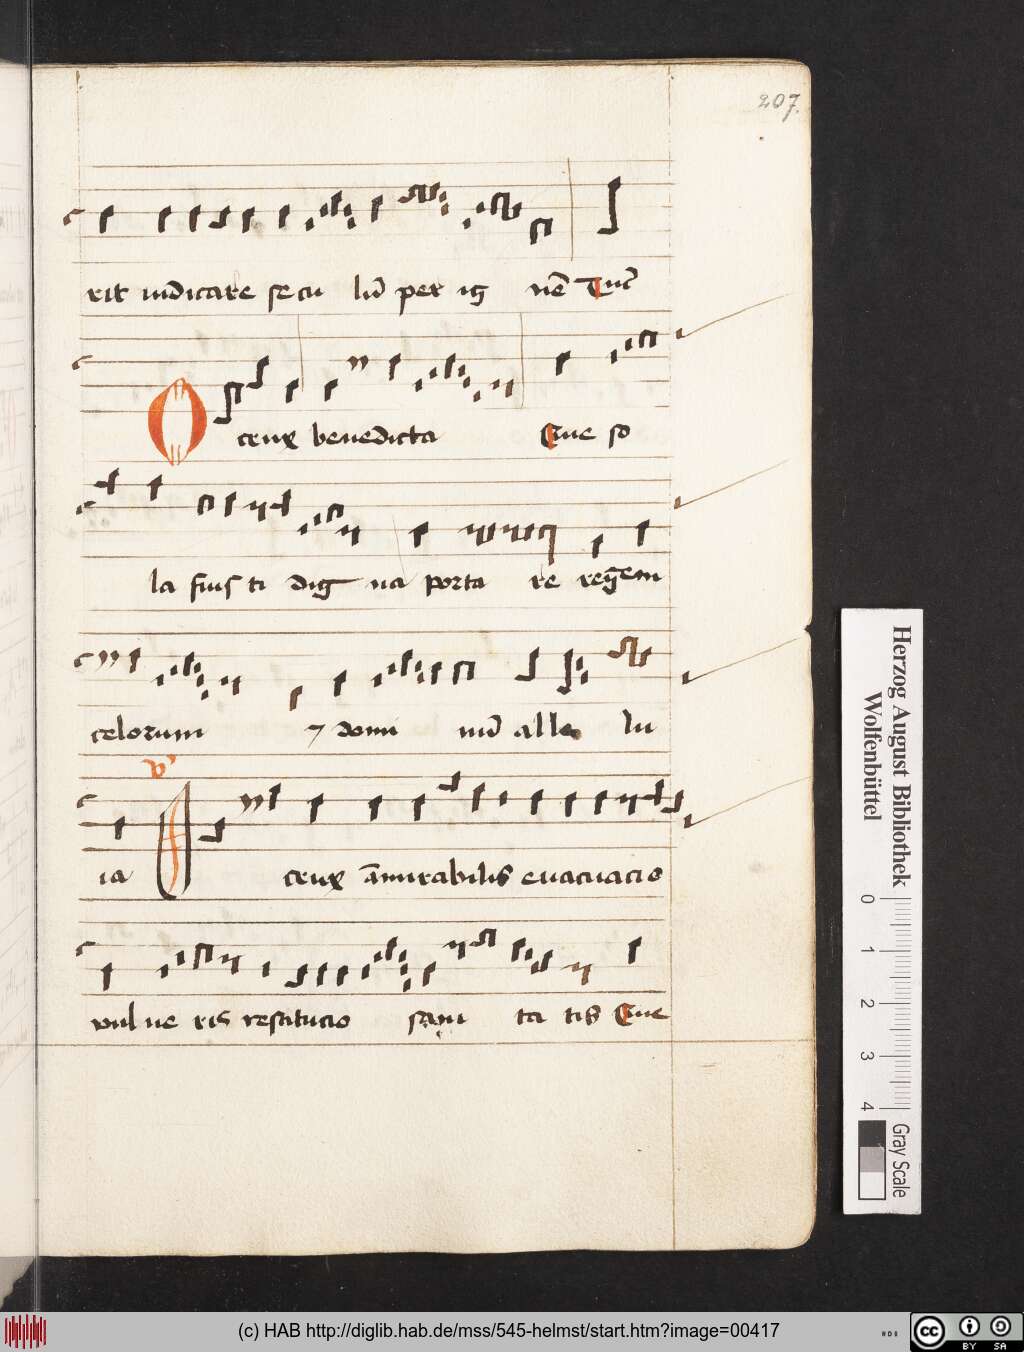 207.
rit iudicare secu lū per ig nē Tūc
O crux benedicta Que so
la fuisti dig na porta re regem
celorum ⁊ domi nū alle lu
ia O crux āmirabilis euacuacio
vul ne ris restitucio sani ta tis Que
Herzog August Bibliothek
Wolfenbüttel
0 1 2 3 4
Gray Scale
(c) HAB http://diglib.hab.de/mss/545-helmst/start.htm?image=00417
cc BY SA